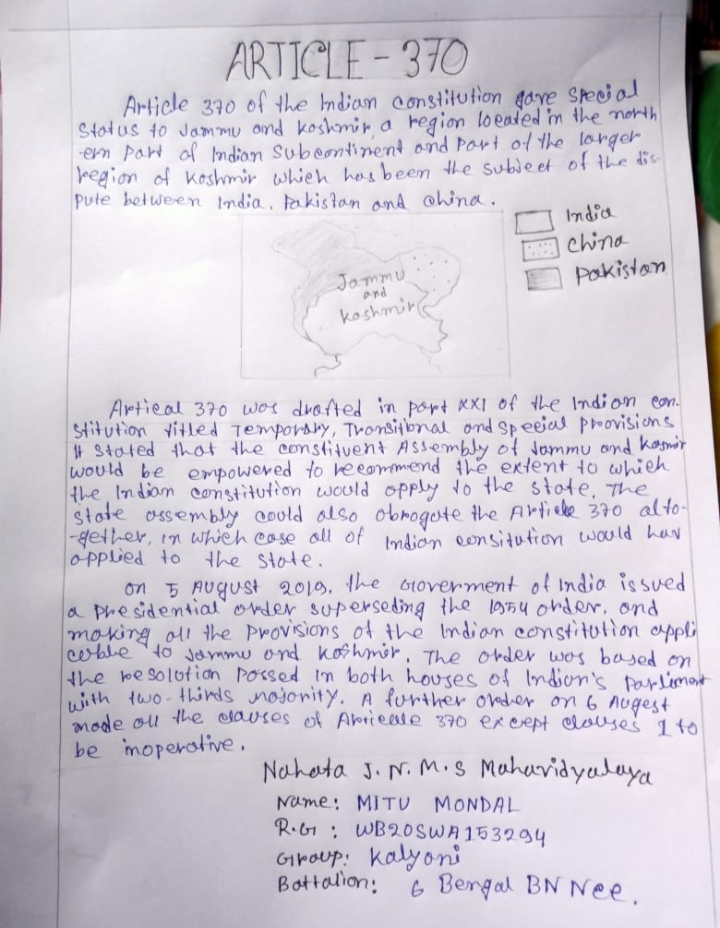 ARTICLE - 370
Article 370 of the Indian constitution gave special
status to Jammu and Koshmir, a region located in the north
-ern part of Indian Subcontinent and part of the larger
region of Koshmir which has been the subject of the dis
pute between India, Pakistan and China.
India
China
Pakistan
Jammu
and
Koshmir
Artical 370 was drafted in part XXI of the Indian con-
stitution titled Temporary, Transitional and Special provisions
It stated that the constituent Assembly of Jammu and Kasmir
would be empowered to recommend the extent to which
the Indian constitution would apply to the state. The
state assembly could also abrogate the Article 370 alto-
-gether, in which case all of Indian consitution would hav
applied to the state.
On 5 AUGUST 2019. the Goverment of India issued
a presidential order superseding the 1954 order, and
making all the provisions of the Indian constitution appli
cable to Jammu and Kashmir. The order was based on
the resolution passed in both houses of Indian's Parliment
with two-thirds majority. A further order on 6 Augest
made all the clauses of 370 except clauses 1 to
be inoperative.
Nahata J.N.M.S Mahavidyalaya
Name: MITU MONDAL
R.G : WB20SWA153294
Group: Kalyani
Battalion: 6 Bengal BN Ncc.